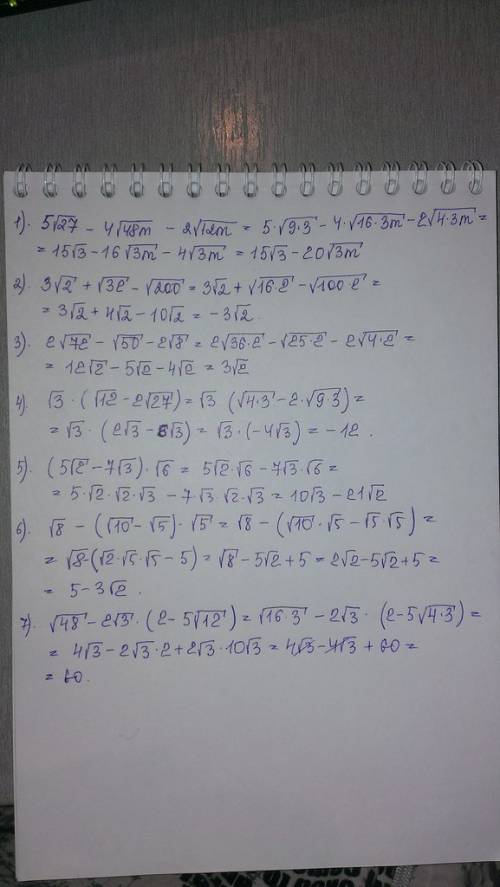 1). 5√27 - 4√48m - 2√12m = 5·√9·3 - 4·√16·3m - 2√4·3m =
= 15√3 - 16√3m - 4√3m = 15√3 - 20√3m
2). 3√2 + √32 - √200 = 3√2 + √16·2 - √100·2 =
= 3√2 + 4√2 - 10√2 = -3√2.
3). 2√72 - √50 - 2√8 = 2√36·2 - √25·2 - 2√4·2 =
= 12√2 - 5√2 - 4√2 = 3√2
4). √3·(√12 - 2√27) = √3 (√4·3 - 2·√9·3) =
= √3·(2√3 - 6√3) = √3·(-4√3) = -12.
5). (5√2 - 7√3)·√6 = 5√2·√6 - 7√3·√6 =
= 5·√2·√2·√3 - 7√3·√2·√3 = 10√3 - 21√2
6). √8 - (√10 - √5)·√5 = √8 - (√10·√5 - √5·√5) =
= √8 - (√2·√5·√5 - 5) = √8 - 5√2 + 5 = 2√2 - 5√2 + 5 =
= 5 - 3√2.
7). √48 - 2√3·(2 - 5√12) = √16·3 - 2√3·(2 - 5√4·3) =
= 4√3 - 2√3·2 + 2√3·10√3 = 4√3 - 4√3 + 60 =
= 60.